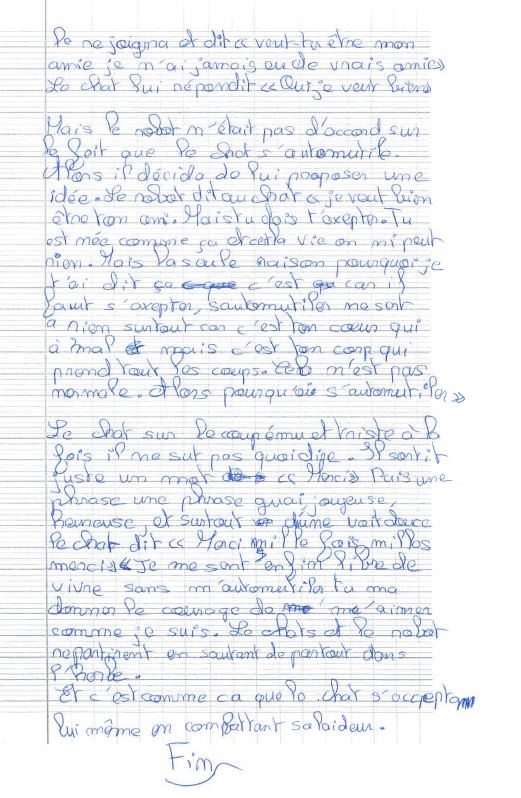 le rejoigna et dit « veut-tu être mon
amie je n'ai jamais eu de vrais amies»
Le chat lui répondit «Oui je veut bien»
Mais le robot n'était pas d'accord sur
le fait que le chat s'automutile.
Alors il décida de lui proposer une
idée. Le robot dit au chat « je veut bien
être ton ami. Mais tu dois t'axepter. Tu
est née comme ça et cetla vie on ni peut
rien. Mais la seule raison pourquoi je
t'ai dit ça c'est car il
faut s'axepter, sautomutiler ne sert
a rien surtout car c'est ton cœur qui
à mal mais c'est ton corp qui
prend tout les coups. Cela n'est pas
normale. Alors pourqu'oi s'automutiler»
Le chat sur le coup ému et triste à la
fois il ne sut pas quoi dije. Il sortit
juste un mot « Merci» Puis une
phrase une phrase quai joyeuse,
heureuse, et surtout d'une voit douce
le chat dit « Merci mille fois milles
mercis « Je me sent enfint libre de
vivre sans m'automutiler tu ma
donner le courage de me'aimer
comme je suis. Le chats et le robot
repartirent en sautant de partout dans
l'herbe.
Et c'est comme ca que le chat s'accepta
lui même en combattant sa laideur.
Fin